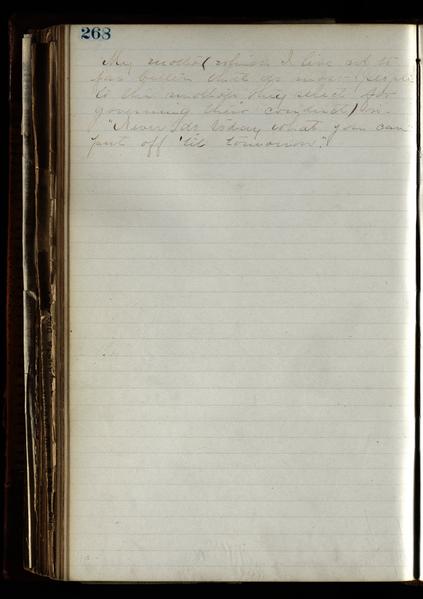 268
My motto (which I live up to
far better than do most people
to the mottoes they select for
governing their conduct) is:
"Never do today what you can
put off 'til tomorrow".